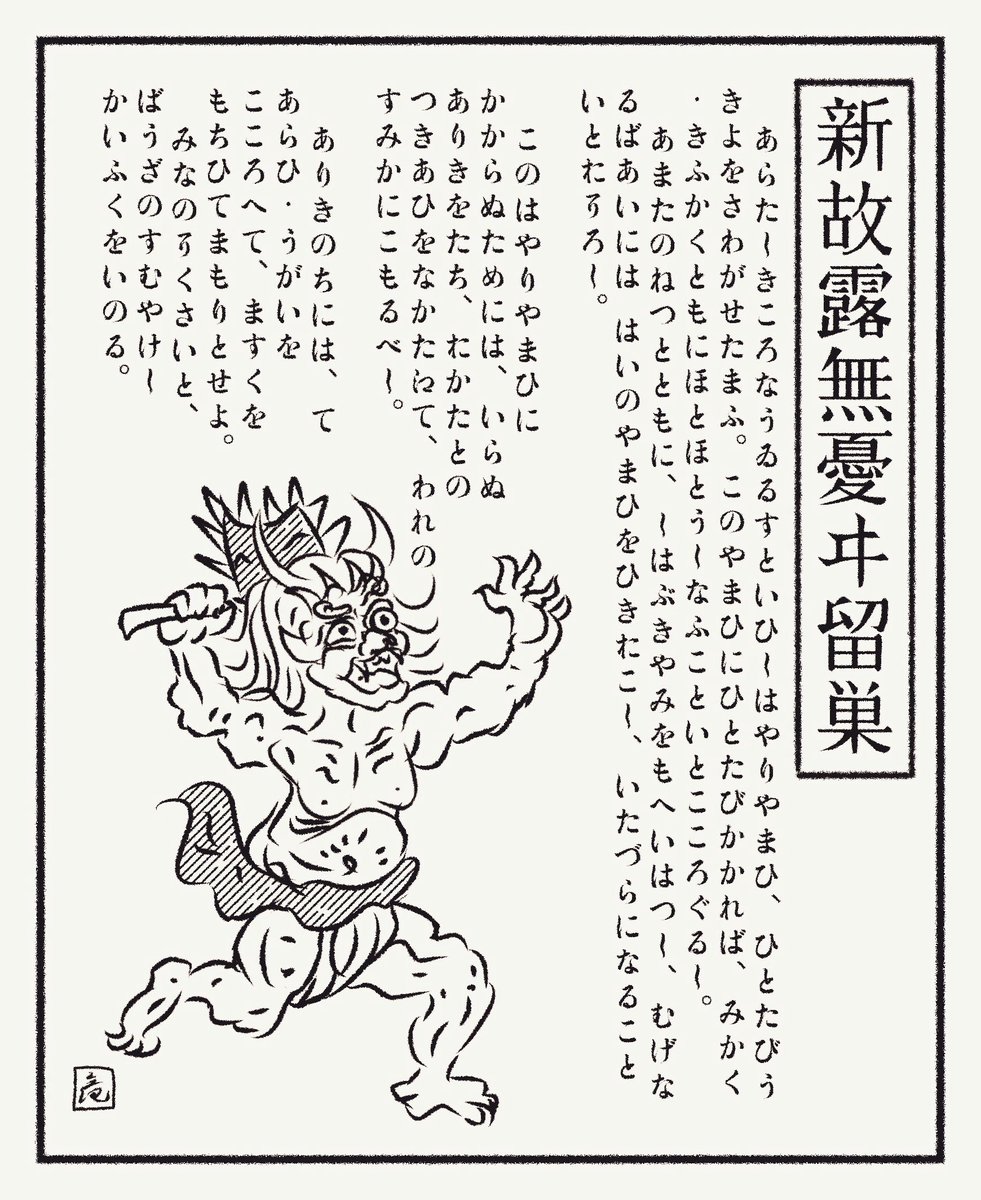 新故露無憂ヰ留巣
あらたしきころなうゐるすといひしはやりやまひ、ひとたびう
きよをさわがせたまふ。このやまひにひとたびかかれば、みかく
・きふかくともにほとほとうしなふこといとこころぐるし。
あまたのねつとともに、しはぶきやみをもへいはつし、むげな
るばあいには はいのやまひをひきおこし、いたづらになること
いとおそろし。
このはやりやまひに
かからぬためには、いらぬ
ありきをたち、おかたとの
つきあひをなかたえて、われの
すみかにこもるべし。
ありきのちには、て
あらひ・うがいを
こころへて、ますくを
もちひてまもりとせよ。
みなのそくさいと、
ばうざのすむやけし
かいふくをいのる。
竜